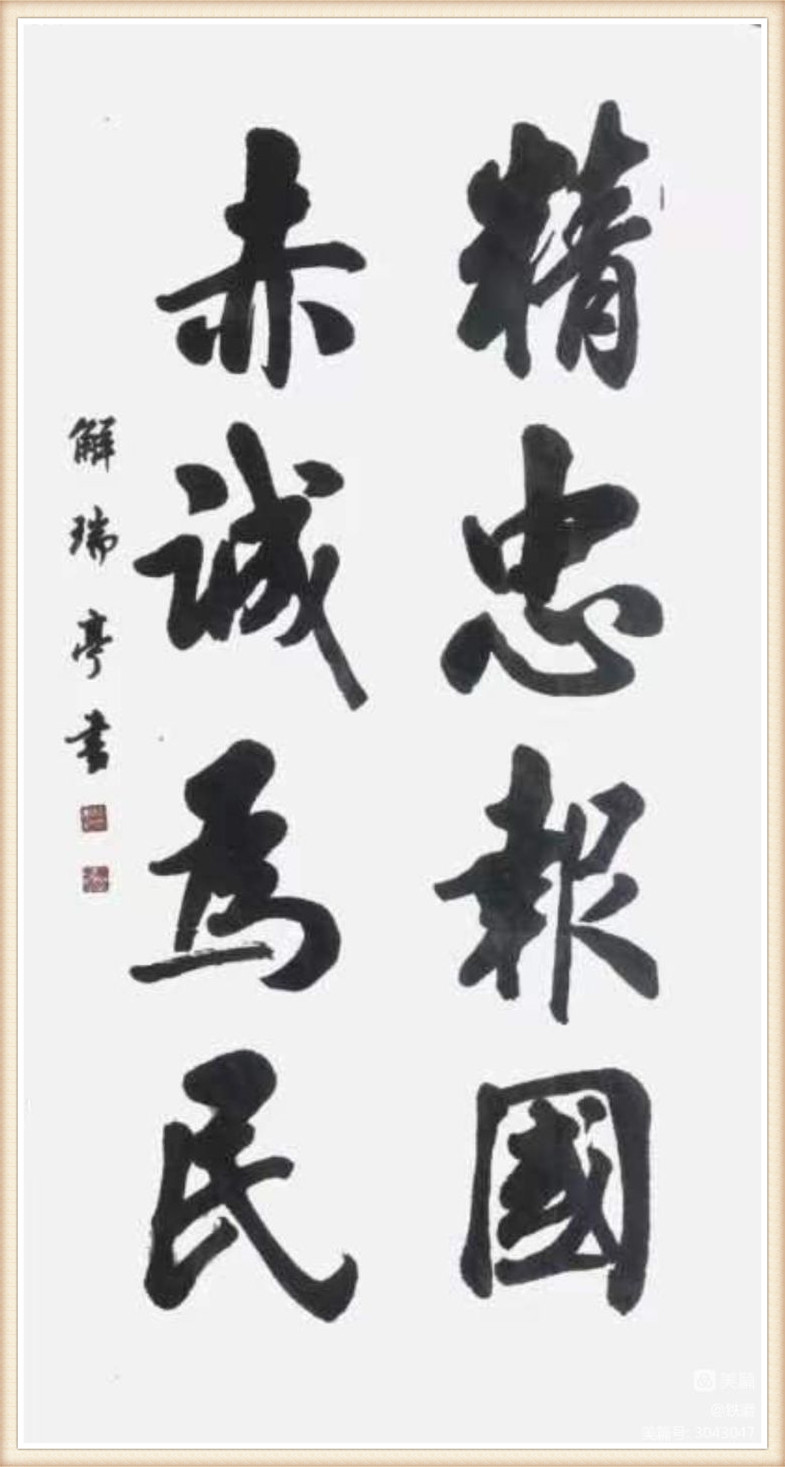 精忠報國
赤誠為民
解瑞亭書
美篇
美篇号: 3043047